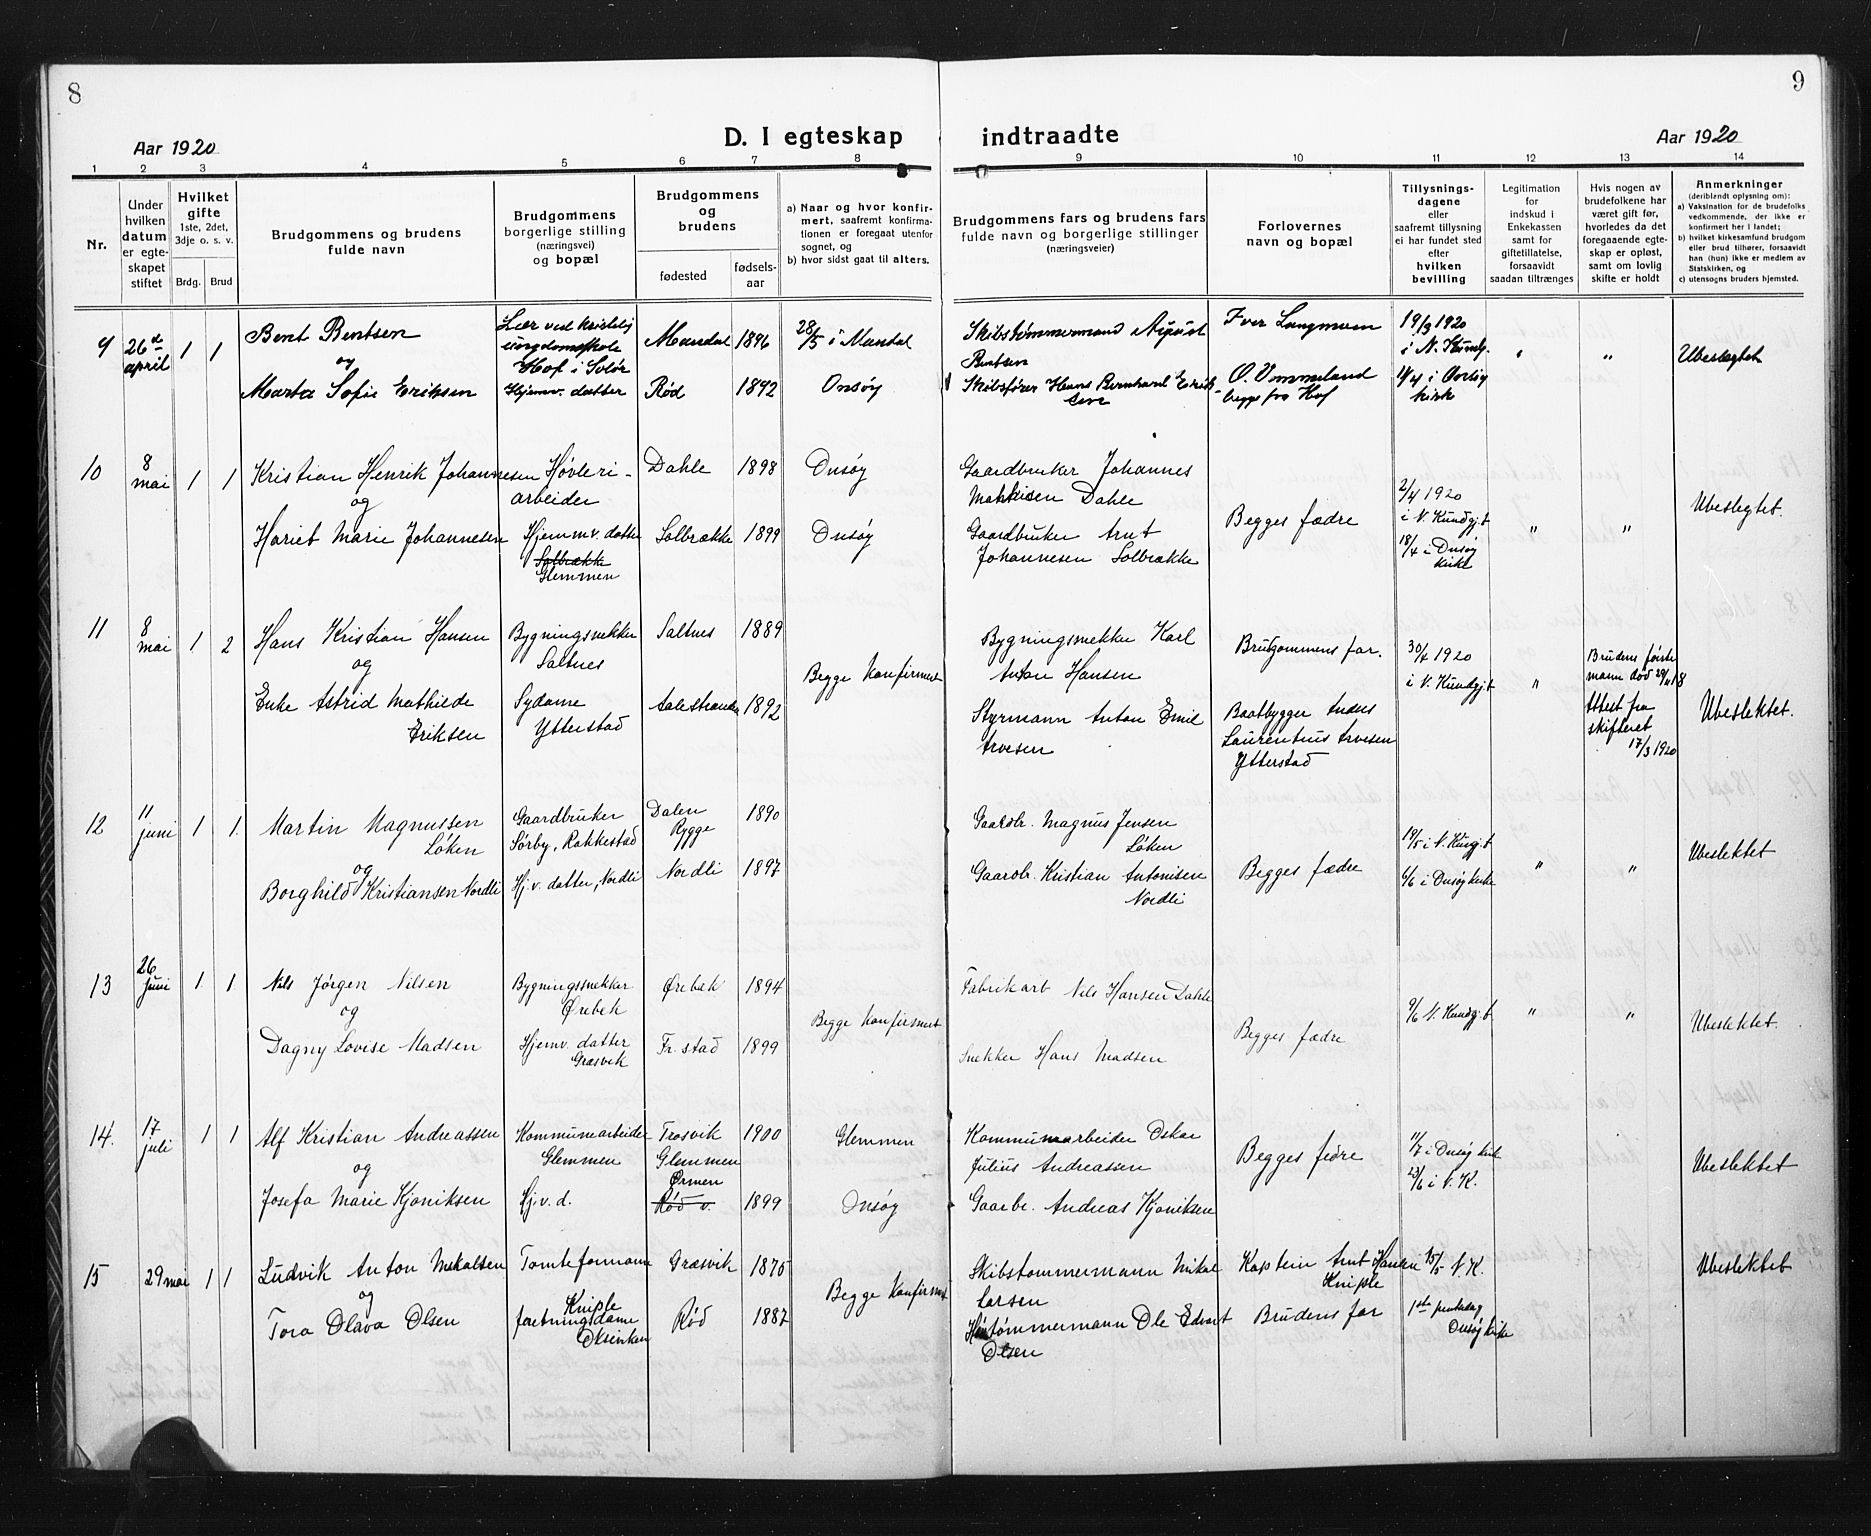 8
Aar 1920
D. I egteskap
1 2 3 4 5 6 7 8
Nr.
Under hvilken datum er egteskapet stiftet
Hvilket gifte 1ste, 2det, 3dje o. s. v.
Brdg. Brud
Brudgommens og brudens fulde navn
Brudgommens borgerlige stilling (næringsvei) og bopæl
Brudgommens og brudens
fødested fødselsaar
a) Naar og hvor konfirmert, saafremt konfirmationen er foregaat utenfor sognet, og
b) hvor sidst gaat til alters.
9 26de april 1 1
Bent Bentsen
og
Marta Sofie Eriksen
Lær ved kristelig
ungdomsskole
Hof i Solør
Hjemv. datter
Mandal 1896
Rød 1892
28/5 i Mandal
Onsøy
10 8 mai 1 1
Kristian Henrik Johannesen
og
Hariet Marie Johannesen
Høvleri-
arbeider
Hjemmv. datter
Solbrække
Glemmen
Dahle 1898
Solbrække 1899
Onsøy
Onsøy
11 8 mai 1 2
Hans Kristian Hansen
og
Enke Astrid Mathilde
Eriksen
Bygningsnekker
Saltnes
Sydame
Ytterstad
Saltnes 1889
Aalestranden 1892
Begge konfirmert
12 11 juni 1 1.
Martin Magnussen
Løken
og
Borghild Kristiansen Nordli
Gaardbruker
Sørby, Rakkestad
Hj.v. datter, Nordli
Dalen
Rygge 1890
Nordli 1897
13 26 juni 1 1
Nils Jørgen Nilsen
og
Dagny Lovise Madsen
Bygningssnekker
Ørebek
Hjemv. datter
Græsvik
Ørebæk 1894
Fr.stad 1899
Begge konfirmert
14. 17 juli 1 1
Alf Kristian Andreassen
og
Josefa Marie Kjøniksen
Kommunearbeider
Glemmen
Hj.v.d.
Trosvik
Glemmen 1900
Ørmen
Rød v. 1899
Glemmen
Onsøy
15 29 mai 1 1
Ludvik Anton Mikalsen
og
Tora Olava Olsen
Tomteformann
Kniple
foretningsdame
Græsvik 1875
Rød 1887
Begge konfirmert
9
indtraadte
Aar 1920
9 10 11 12 13 14
Brudgommens fars og brudens fars fulde navn og borgerlige stillinger (næringsveier)
Forlovernes navn og bopæl
Tillysningsdagene eller saafremt tillysning ei har fundet sted efter hvilken bevilling
Legitimation for indskud i Enkekassen samt for giftetillatelse, forsaavidt saadan tiltrænges
Hvis nogen av brudefolkene har været gift før, hvorledes da det foregaaende egteskap er opløst, samt om lovlig skifte er holdt
Anmerkninger (deriblandt oplysning om):
a) Vaksination for de brudefolks vedkommende, der ikke er konfirmert her i landet;
b) hvilket kirkesamfund brudgom eller brud tilhører, forsaavidt han (hun) ikke er medlem av Statskirken, og
c) utensogns bruders hjemsted.
Skibstømmermand August
Bentsen
Skibsfører Hans Bernhard Erik-
sen
Iver Langmoen
O. Vommeland
begge fra Hof
19/3 1920
i N. Kundg.
11/4 i Onsøy
kirk
" "
Ubeslegtet
Gaardbruker Johannes
Mathisen Dahle
Gaardbruker Arnt
Johannesen Solbrække
Begges fædre
2/4 1920
i N. Kundgj.t
18/4 i Onsøy
kirke
" "
Ubeslegtet.
Bygningsnekker Karl
Anton Hansen
Styrmann Anton Emil
Arvesen
Brudgommens far.
Baatbygger Anders
Laurentius Arvesen
Ytterstad
30/4 1920
i N. Kundgj.t
"
Brudens første
mann død 29/11 18
Attest fra
skifteret
17/3 1920
Ubeslektet.
Gaardbr. Magnus Jensen
Løken
Gaardbr. Kristian Antonisen
Nordli
Begges fædre
6/6 i Onsøy kirke
" "
Ubeslektet
Fabrikarb Nils Hansen Dahle
Snekker Hans Madsen
Begges fædre
9/6 N. Kundgj.t
" "
Ubeslektet.
Kommunearbeider Oskar
Julius Andreassen
Gaarbr. Andreas Kjøniksen
Begges fedre
11/7 i Onsøy kirk
23/6 i N. K.
Ubeslektet
Skibstømmermann Mikal
Larsen
Hustømmermann Ole Edvart
Olsen
Kaptein Arnt Hansen
Kniple
Brudens far
15/5 N. K.
1ste pinsedag
Onsøy kirke
Ubeslektet